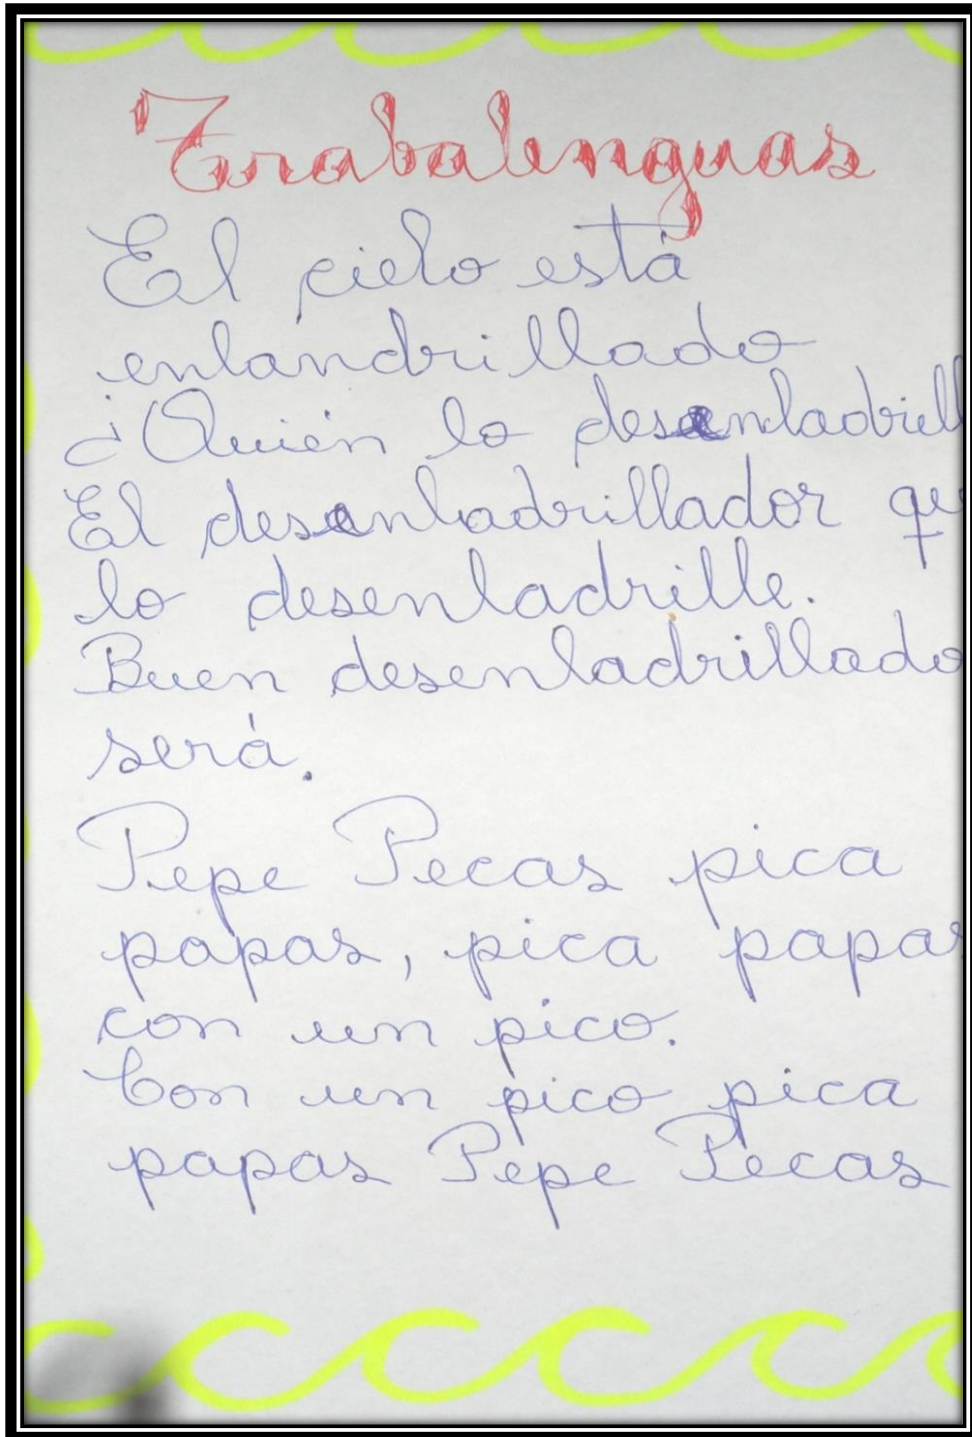 Trabalenguas
El cielo está
enlandrillado
¿Quién lo desenladrill
El desenladrillador qu
lo desenladrille.
Buen desenladrillado
será.
Pepe Pecas pica
papas, pica papas
con un pico.
Con un pico pica
papas Pepe Pecas